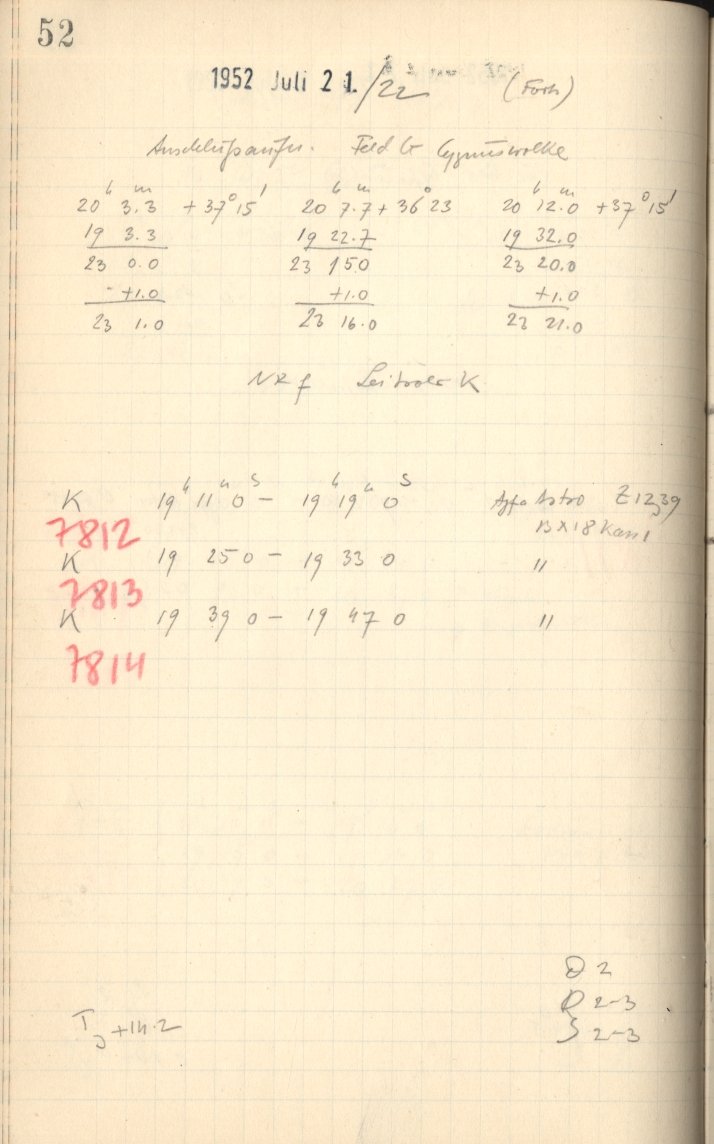 52
1952 Juli 21./22 (Forts)
Anschlußaufn. Feld G Cygnuswolke
20h 3.3m +37°15' 20h 7.7m +36°23 20h 12.0m +37°15'
19 3.3 19 22.7 19 32.0
23 0.0 23 15.0 23 20.0
+1.0 +1.0 +1.0
23 1.0 23 16.0 23 21.0
f K
K 19h 11m 0s – 19h 19m 0s Agfa Astro Z1239
7812 13X18 Kass1
K 19 25 0 – 19 33 0 "
7813
K 19 39 0 – 19 47 0 "
7814
D 2
R 2-3
T +14.2 S 2-3